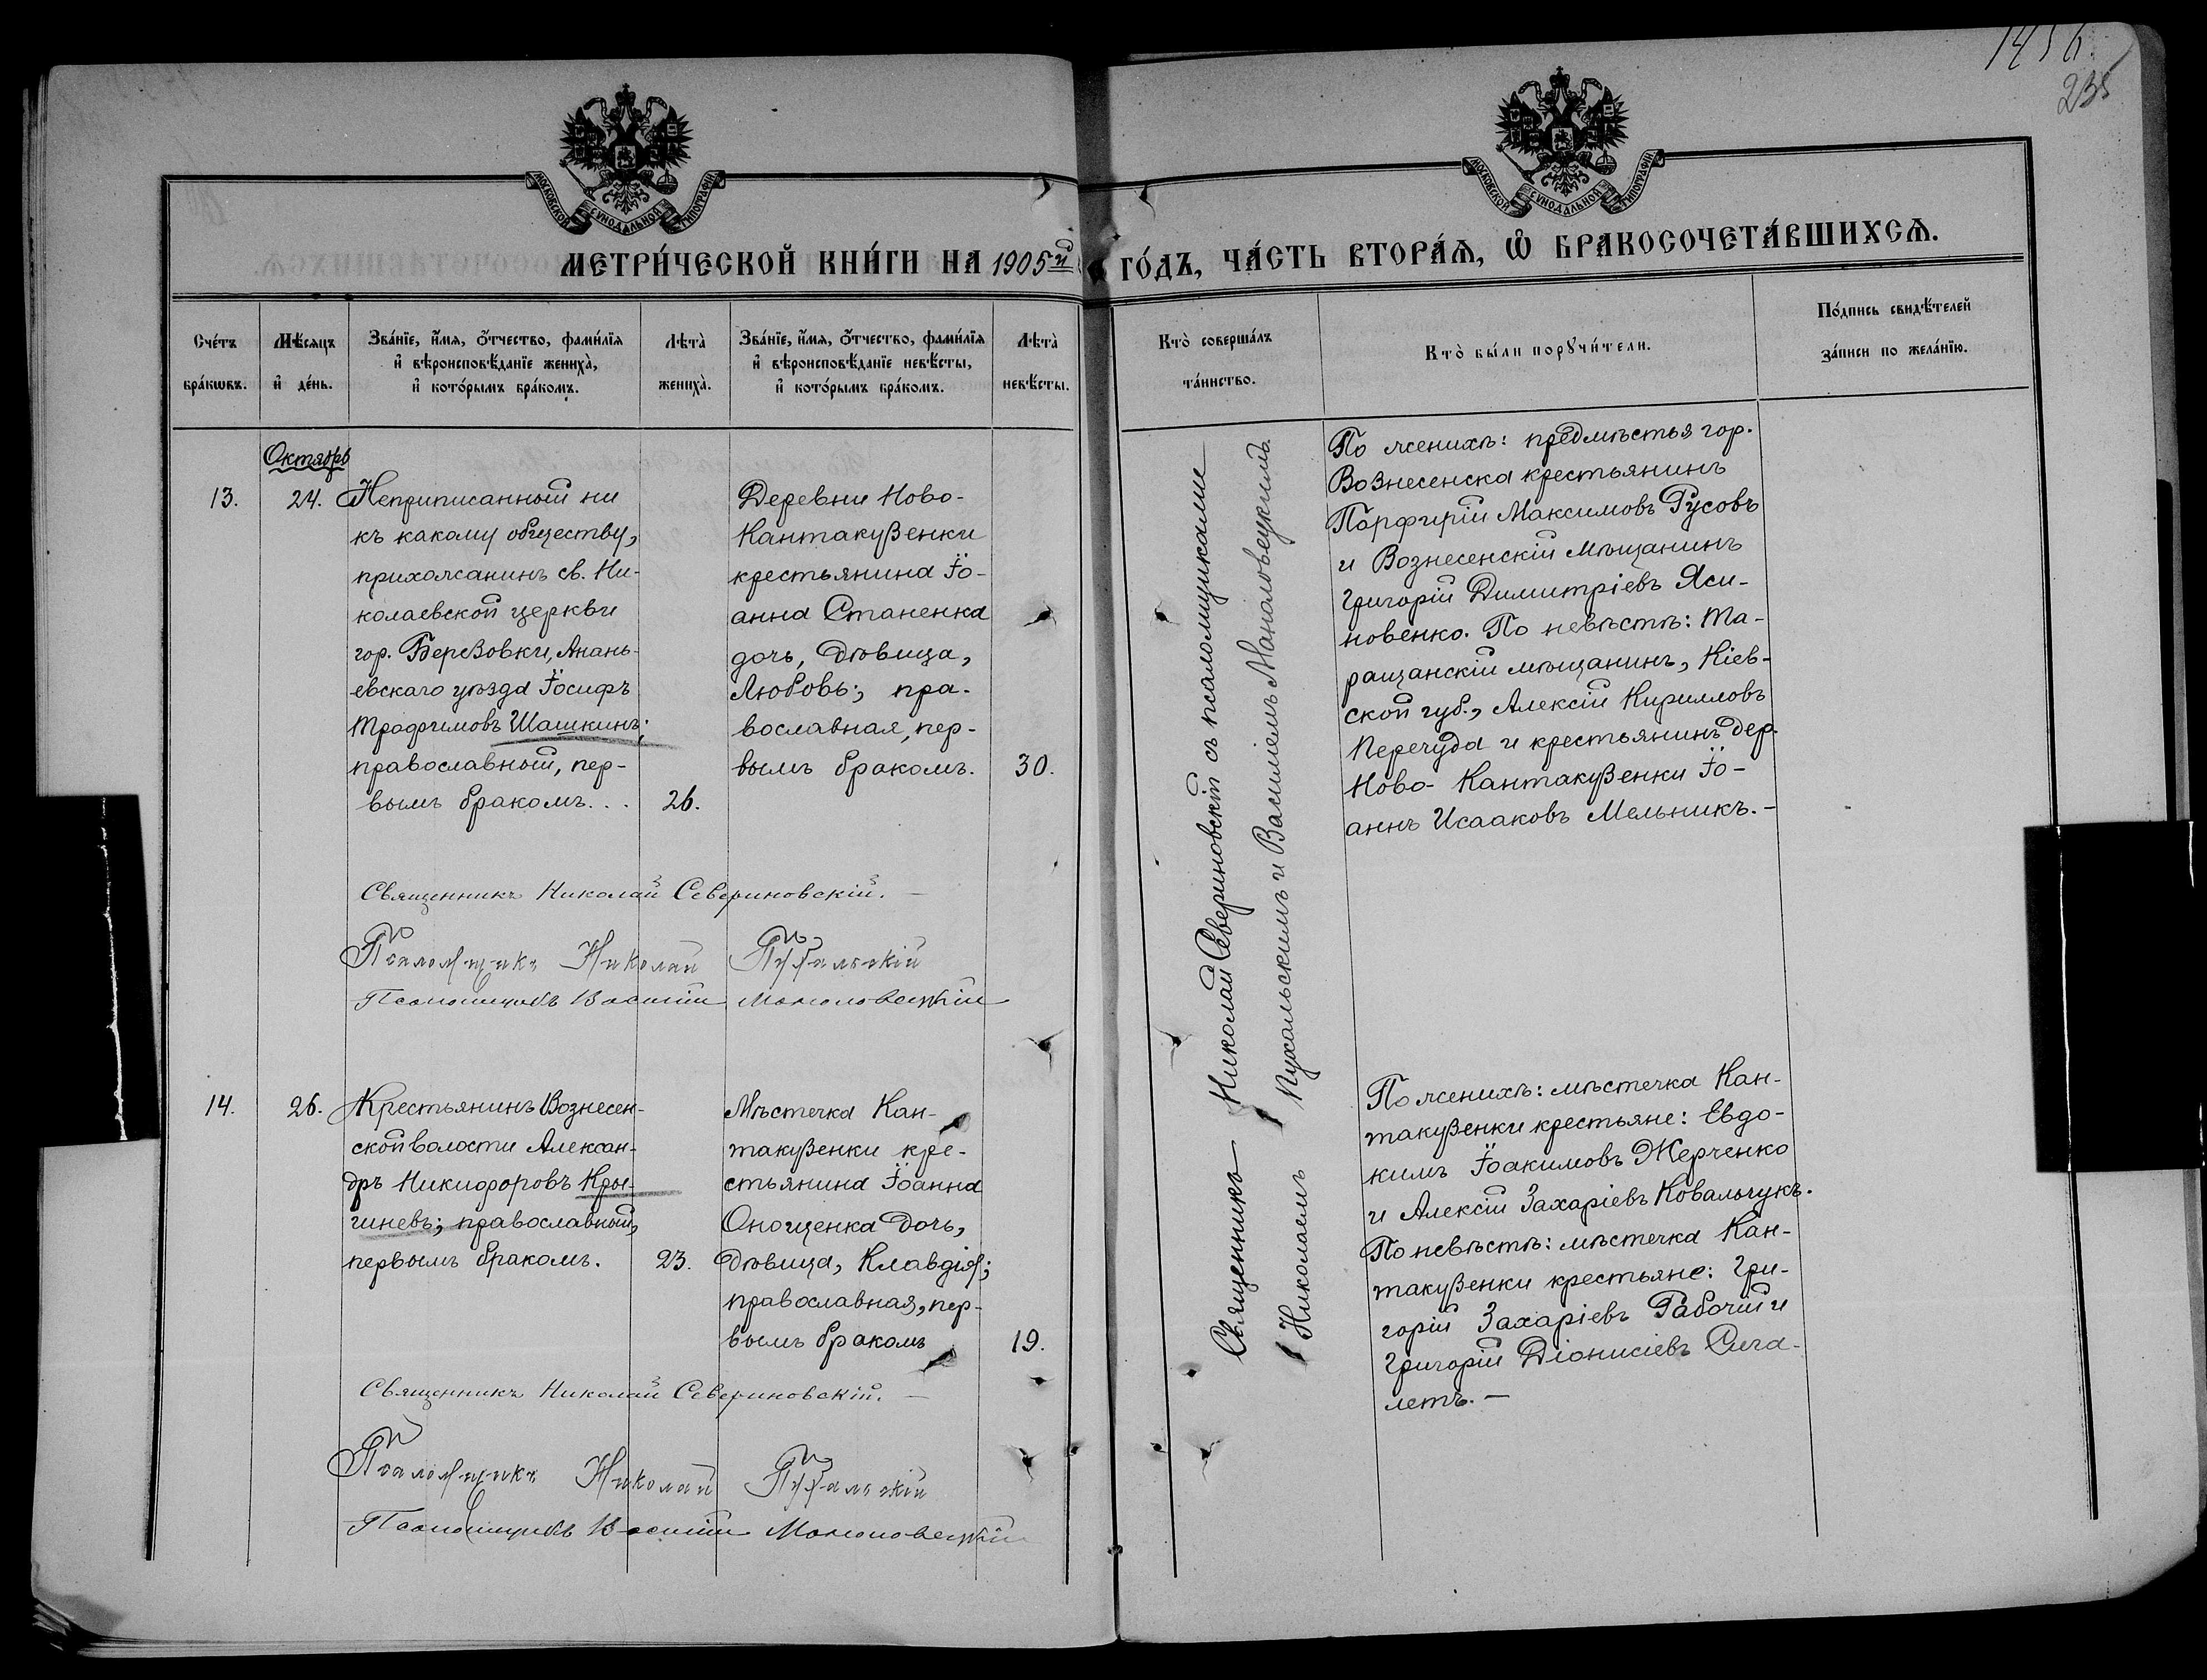 1456.
235
МОСКОВСКОЙ СѴНОДАЛЬНОЙ ТИПОГРАФІИ.
МОСКОВСКОЙ СѴНОДАЛЬНОЙ ТИПОГРАФІИ.
МЕТРИ́ЧЕСКОЙ КНИ́ГИ НА 1905й ГО́ДЪ, ЧА́СТЬ ВТОРА́Ѧ, Ѽ БРАКОСОЧЕТА́ВШИХСѦ.
Сче́тъ бра́кѡвъ.
Мѣ́сяцъ и҆ де́нь.
Зва́нїе, и҆́мя, ѻ҆́тчество, фами́лїя
и҆ вѣроисповѣ́данїе жениха̀,
и҆ кото́рымъ бра́комъ.
Лѣта̀ жениха̀.
Зва́нїе, и҆́мя, ѻ҆́тчество, фами́лїя
и҆ вѣроисповѣ́данїе невѣ́сты,
и҆ кото́рымъ бра́комъ.
Лѣта̀ невѣ́сты.
Кто̀ соверша́лъ
та́инство.
Кто̀ бы́ли порꙋчи́тели.
По́дпись свидѣ́телей
за́писи по жела́нїю.
Октябрь
13.
24.
Неприписанный ни
къ какому обществу,
прихожанинъ св. Ни-
колаевской церкви
гор. Березовки, Анань-
евскаго уѣзда Іосифъ
Трофимовъ Шашкинъ;
православный, пер-
вымъ бракомъ...
26.
Деревни Ново-
Кантакузенки
крестьянина Іо-
анна Станенка
дочь, дѣвица,
Любовь; пра-
вославная, пер-
вымъ бракомъ.
30.
Священникъ Николай Севериновскій съ псаломщиками
Николаемъ Пухальскимъ и Василіемъ Манолов​ецкимъ.
По женихѣ: предмѣстья гор.
Вознесенска крестьянинъ
Порфирій Максимовъ Русовъ
и Вознесенскій мѣщанинъ
Григорій Димитріевъ Яси-
новенко. По невѣстѣ: Та-
ращанскій мѣщанинъ, Кіев-
ской губ., Алексій Кирилловъ
Перечуда и крестьянинъ дер.
Ново-Кантакузенки Іо-
аннъ Исааковъ Мельникъ. —
Священникъ Николай Севериновскій. —
Псаломщикъ Николай Пухальскій
Псаломщикъ Василій Маноловецкій
14.
26.
Крестьянинъ Вознесен-
ской волости Алексан-
дръ Никифоровъ Кры-
гиневъ; православный,
первымъ бракомъ.
23.
Мѣстечка Кан-
такузенки кре-
стьянина Іоанна
Онощенка дочь,
дѣвица, Клавдія;
православная, пер-
вымъ бракомъ
19.
По женихѣ: мѣстечка Кан-
такузенки крестьяне: Евдо-
кимъ Іоакимовъ Жерченко
и Алексій Захаріевъ Ковальчукъ.
По невѣстѣ: мѣстечка Кан-
такузенки крестьяне: Гри-
горій Захаріевъ Рабочій и
Григорій Діонисіевъ Сига-
летъ. —
Священникъ Николай Севериновскій. —
Псаломщикъ Николай Пухальскій
Псаломщикъ Василій Маноловецкій